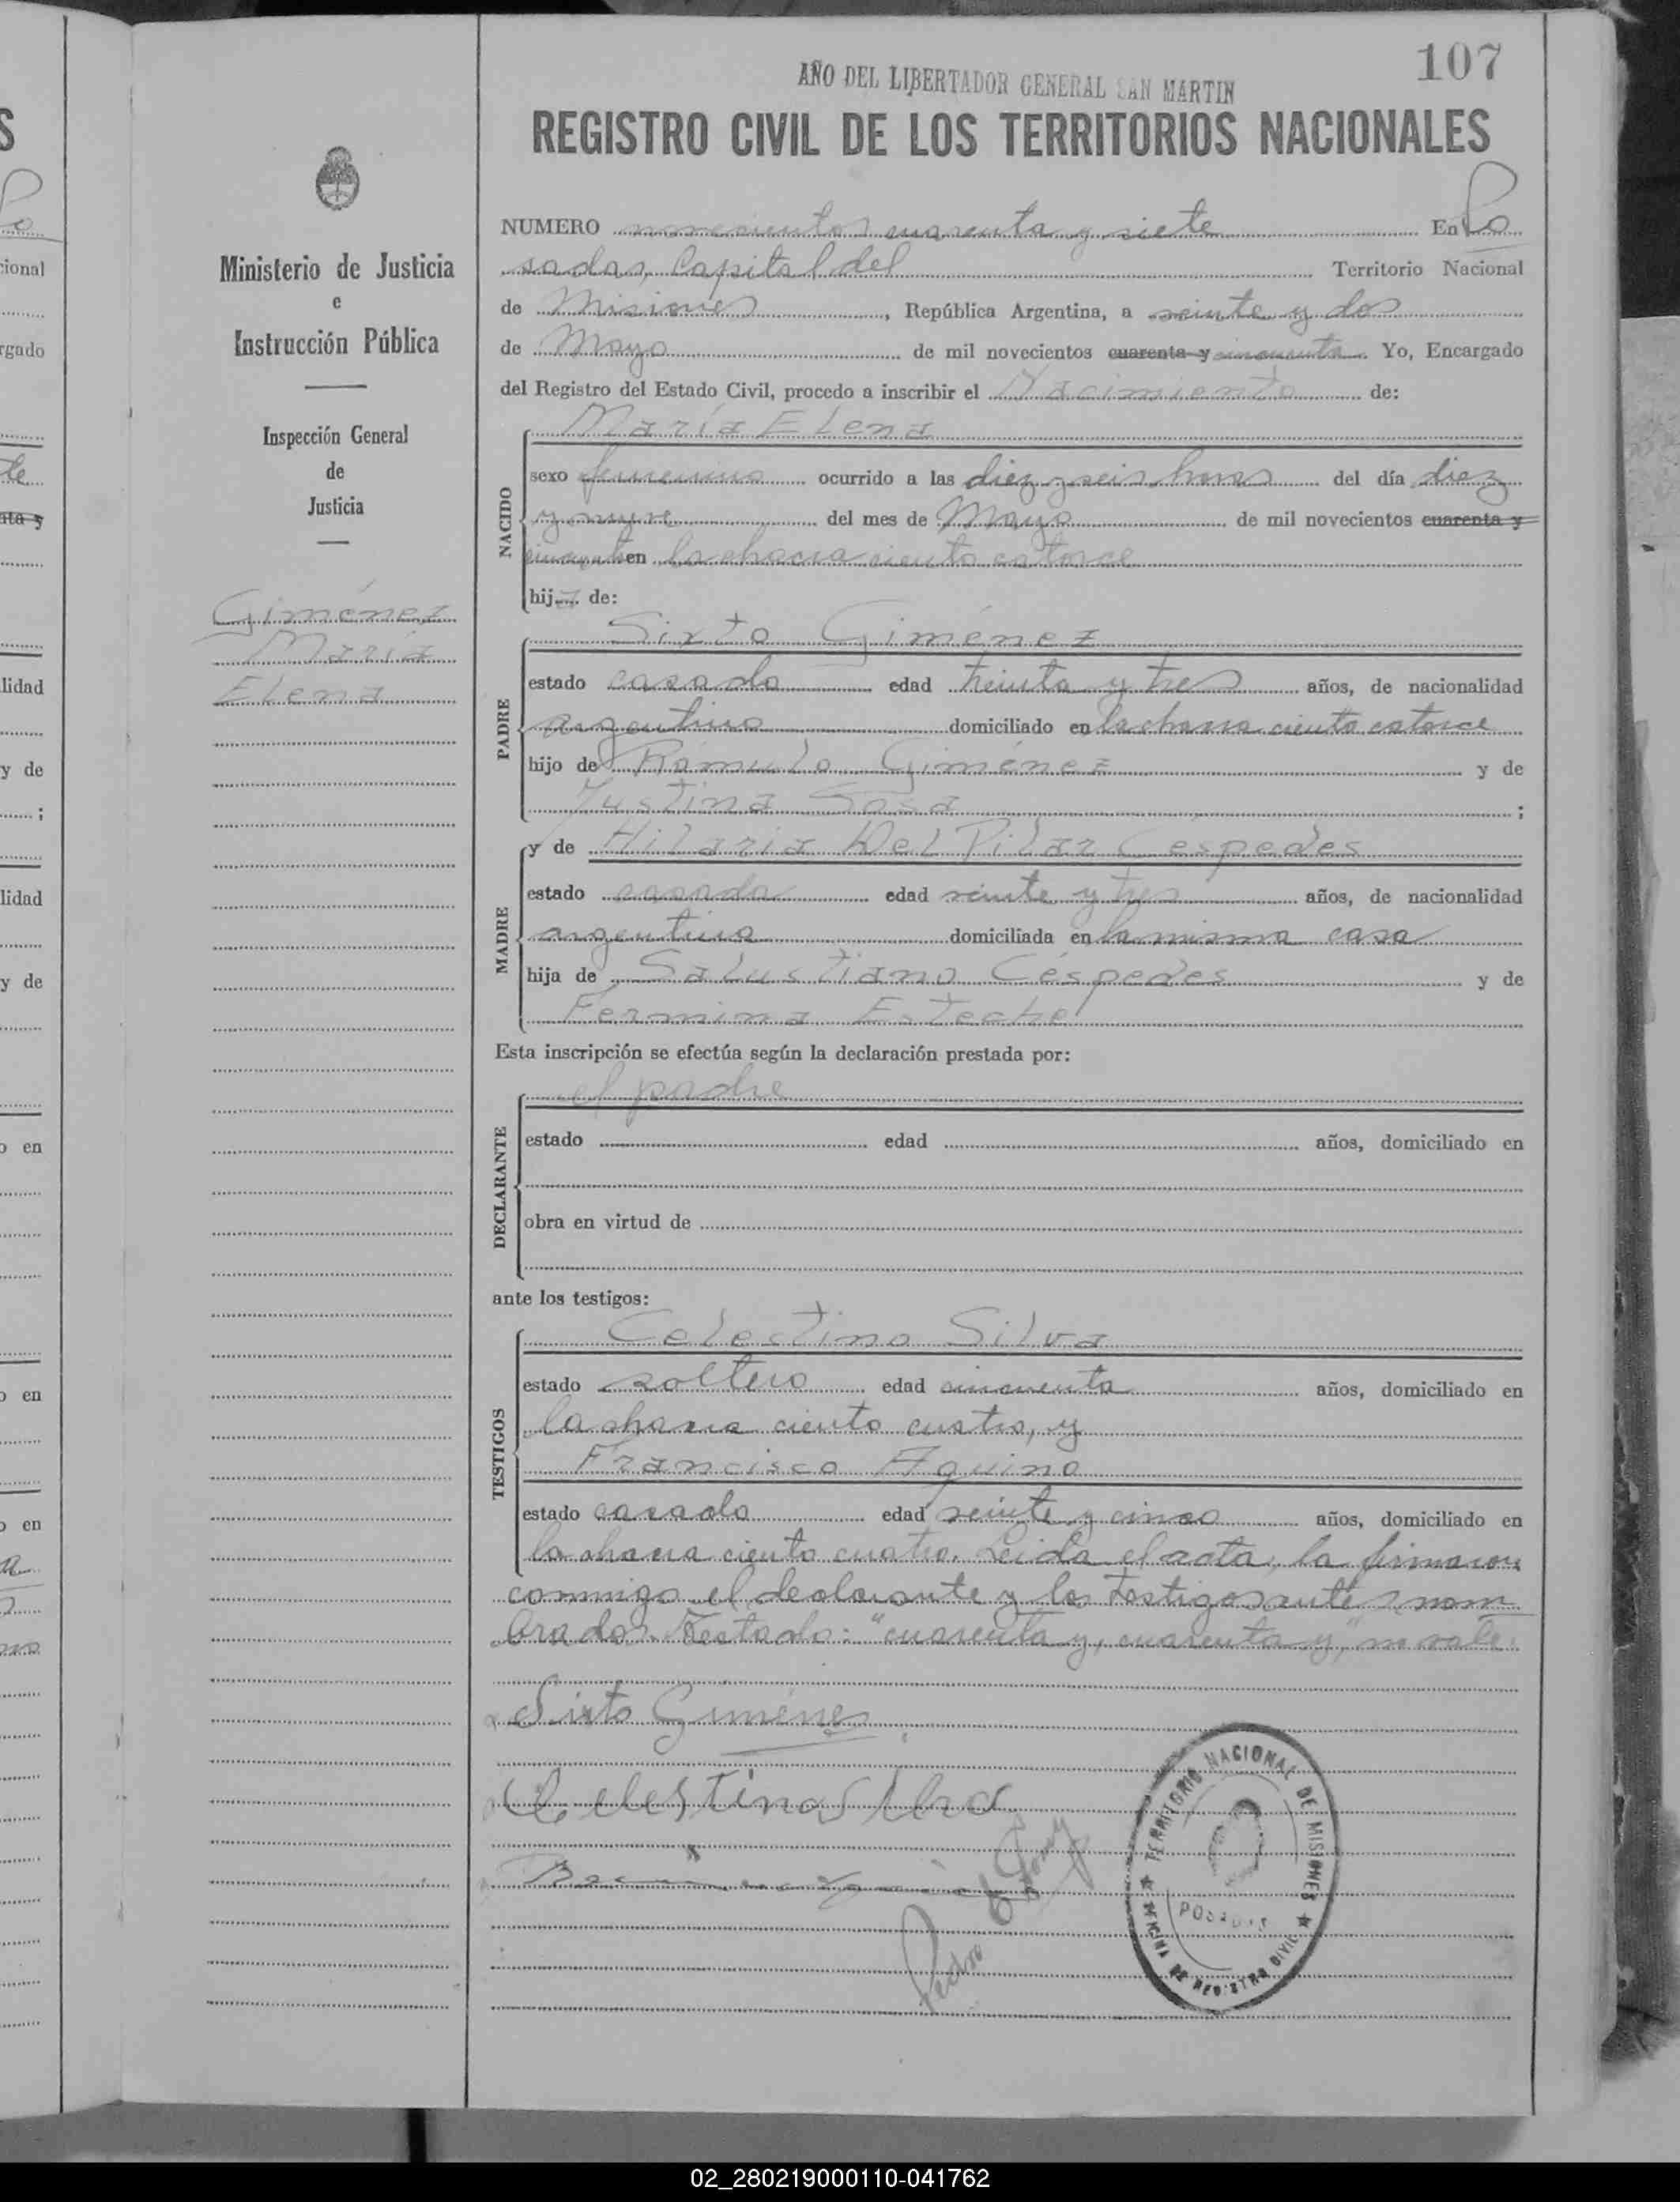 107
AÑO DEL LIBERTADOR GENERAL SAN MARTIN
REGISTRO CIVIL DE LOS TERRITORIOS NACIONALES
Ministerio de Justicia
e
Instrucción Pública
Inspección General
de
Justicia
Giménez
María
Elena
NUMERO novecientos cuarenta y siete En Po
sadas, Capital del Territorio Nacional
de Misiones, República Argentina, a veinte y dos
de Mayo de mil novecientos cuarenta y cincuenta. Yo, Encargado
del Registro del Estado Civil, procedo a inscribir el Nacimiento de:
NACIDO
María Elena
sexo femenino ocurrido a las diez y seis horas del día diez
y nueve del mes de Mayo de mil novecientos cuarenta y
cincuenta en la chacra ciento catorce
hija de:
PADRE
Sixto Giménez
estado casado edad treinta y tres años, de nacionalidad
argentino domiciliado en la chacra ciento catorce
hijo de Rómulo Giménez y de
Justina Sosa ;
MADRE
y de Hilaria Del Pilar Céspedes
estado casada edad veinte y tres años, de nacionalidad
argentina domiciliada en la misma casa
hija de Salustiano Céspedes y de
Fermina Esteche
Esta inscripción se efectúa según la declaración prestada por:
DECLARANTE
el padre
estado edad años, domiciliado en
obra en virtud de
ante los testigos:
TESTIGOS
Celestino Silva
estado soltero edad cincuenta años, domiciliado en
la chacra ciento cuatro, y
Francisco Aquino
estado casado edad veinte y cinco años, domiciliado en
la chacra ciento cuatro. Leída el acta, la firmaron
conmigo el declarante y los testigos antes nom
brados. Testado: "cuarenta y, cuarenta y," no vale.
Sixto Giménez
Celestino Silva
Pedro
TERRITORIO NACIONAL DE MISIONES
POSADAS
OFICINA DE REGISTRO CIVIL
02_280219000110-041762